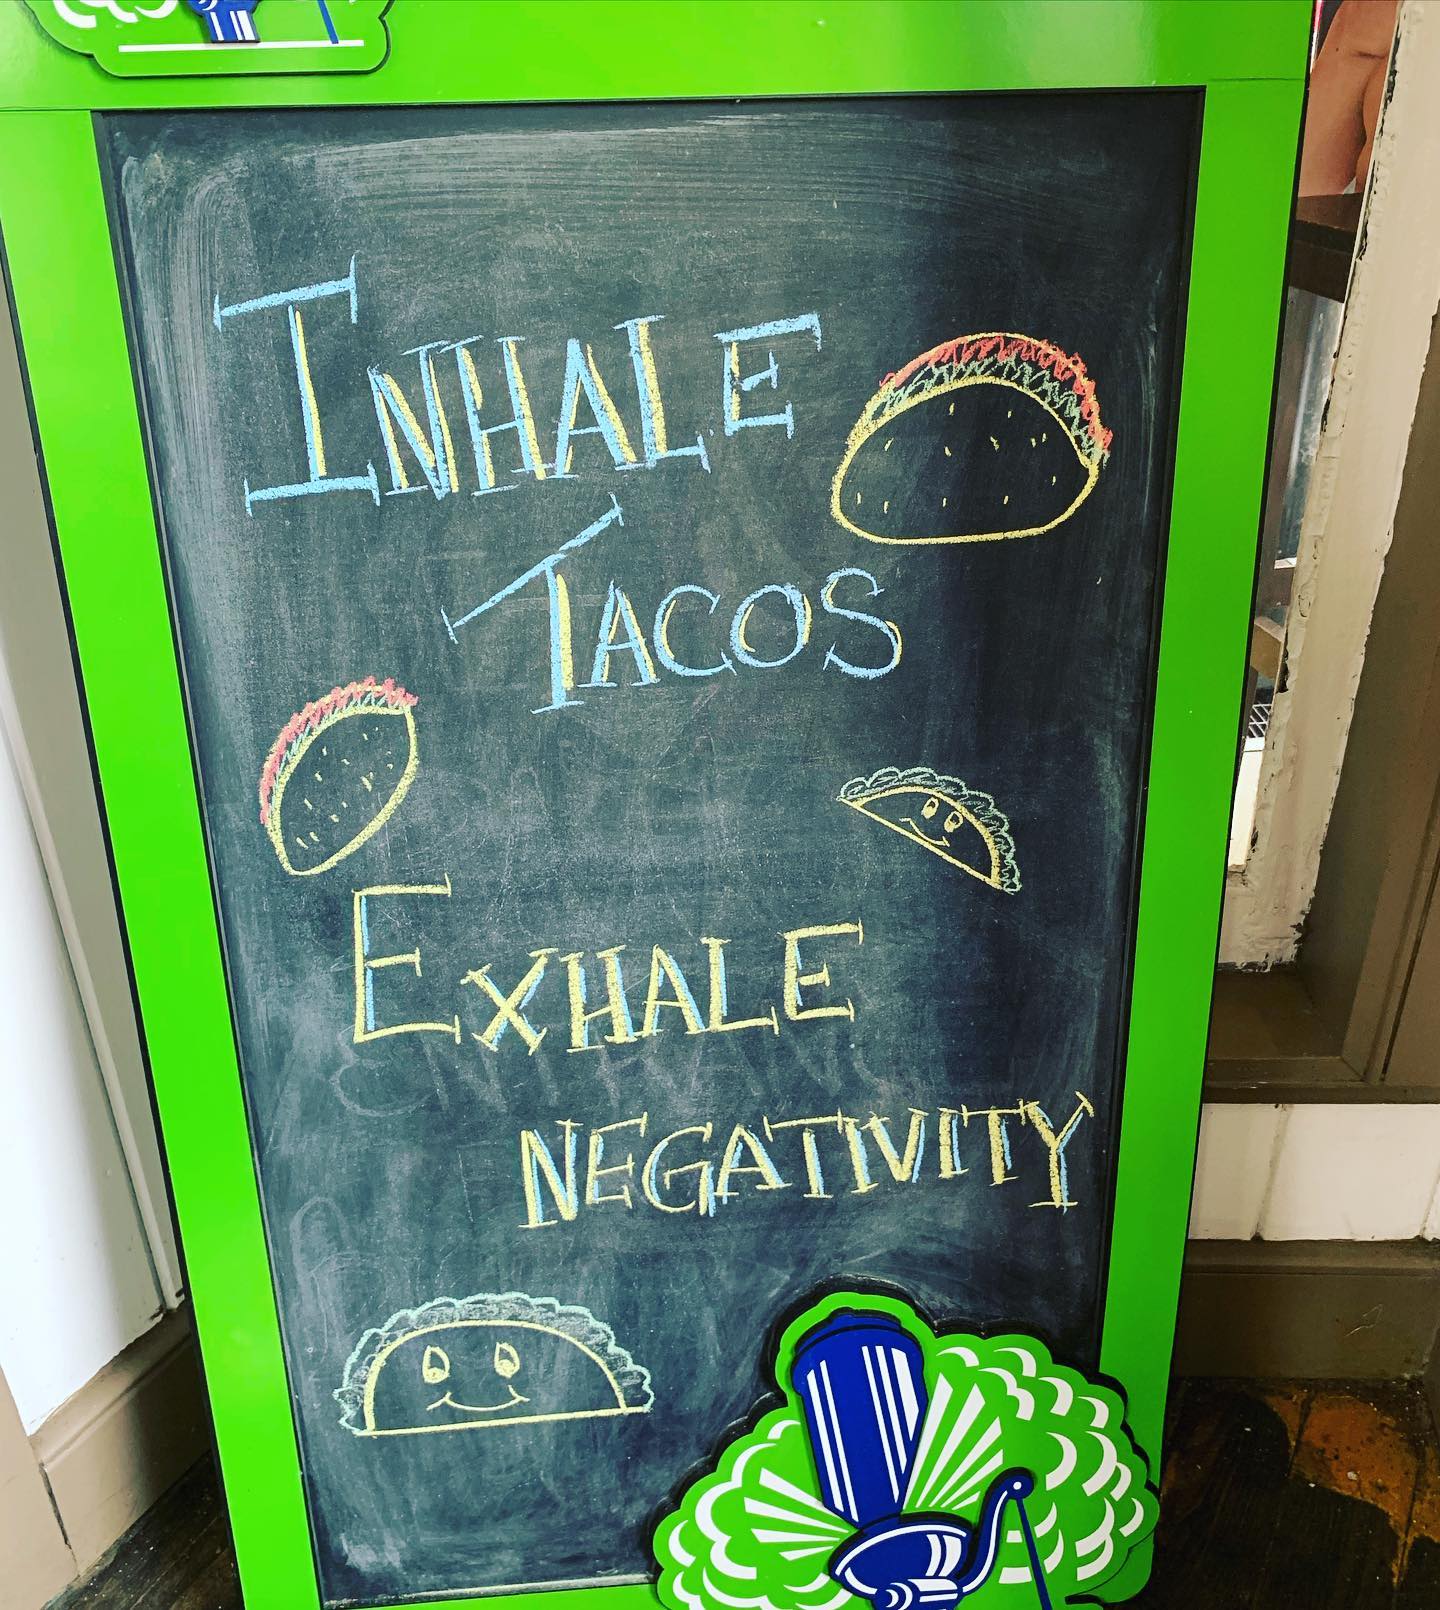 INHALE
TACOS
EXHALE
NEGATIVITY